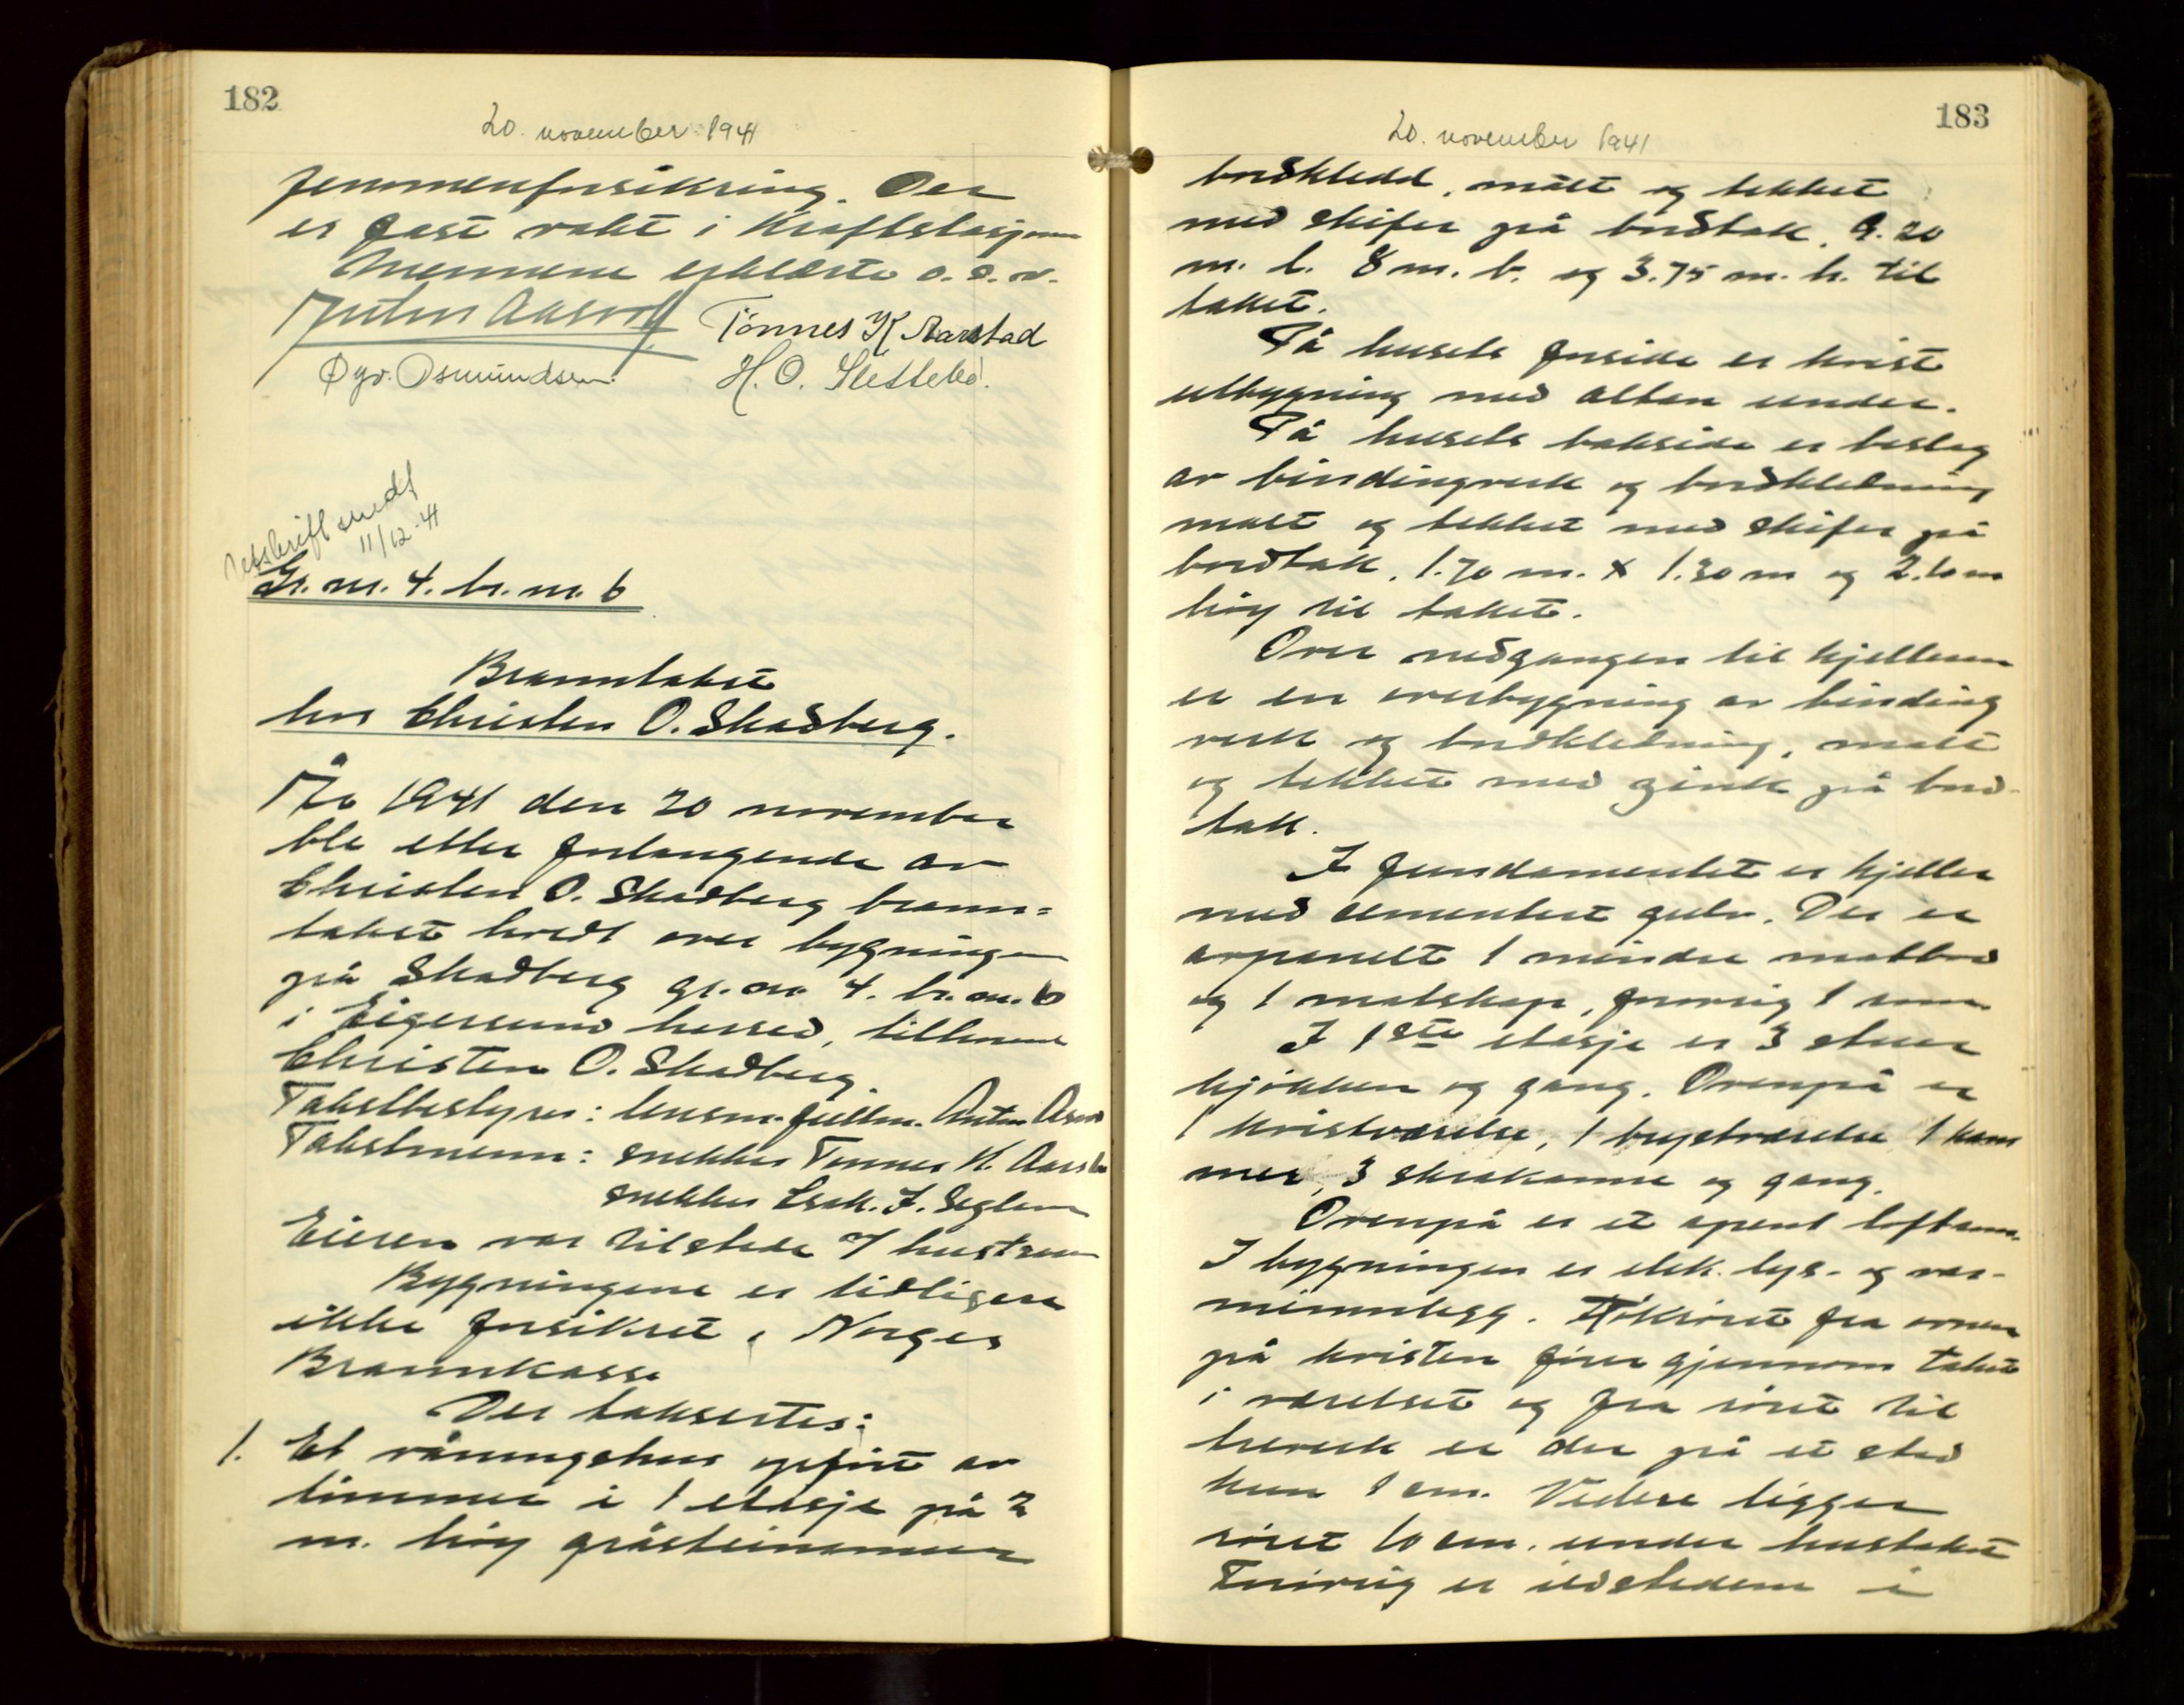 182
20. november 1941
er fast vakt i Kraftstasjonen
Mennene erklærte o.s.v.
Anton Aasen Tönnes K Aarstad
Øyv. Osmundsen. H. O. Slettebø.
Utskrift sendt
11/12-41
Gr. nr. 4. br. nr. 6
Branntakst
hos Christen O. Skadberg.
År 1941 den 20 november
ble etter forlangende av
Christen O. Skadberg brann=
takst holdt over bygningen
på Skadberg gr. nr. 4. br. nr. 6
i Eigersund herred, tilhørende
Christen O. Skadberg.
Takstbestyrer: lensm. fullm. Anton
Takstmenn: snekker Tønnes K. Aarstad
snekker Isak. J. Seglem
Eieren var tilstede v/ hustruen
Bygningene er tidligere
ikke forsikret i Norges
Brannkasse
Der taksertes:
1. Et våningshus opført av
tømmer i 1 etasje på 2
m. høy gråsteinsmur
183
20. november 1941
bordkledd, malt og tekket
med skifer på bordtak. 9.20
m. l. 8 m. b. og 3.75 m. h. til
taket.
På husets forside er kvist
utbygning med altan under.
På husets bakside er beslag
av bindingverk og bordkledning
malt og tekket med skifer på
bordtak. 1.70 m. x 1.30 m og 2.10 m
høy til taket.
Over nedgangen til kjelleren
er en overbygning av binding
verk og bordkledning, malt
og tekket med zink på bord-
tak.
I fundamentet er kjeller
med cementert gulv. Der er
avpanelt 1 mindre matbod
og 1 matskap, forøvrig 1 rom
I 1ste etasje er 3 stuer
kjøkken og gang. Ovenpå er
1 kvistværelse, 1 brystværelse 1 kam
mer, 3 skrakammer og gang.
Ovenpå er et åpent loftsrom.
I bygningen er elek. lys- og var-
meinnlegg. Røkrøret fra ovnen
på kvisten fører gjennom taket
i værelset og fra røret til
treverk er der på et sted
kun 8 cm. Videre ligger
røret 10 cm. under hustaket
Forøvrig er ildstedene i